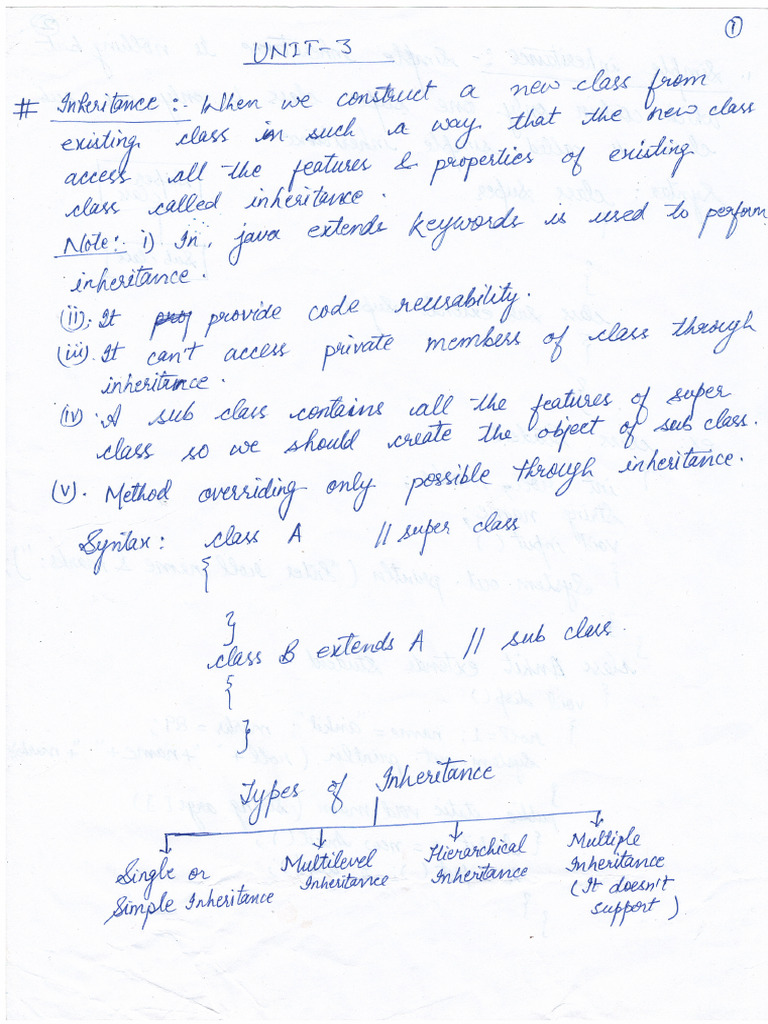 1
UNIT-3
# Inheritance :- When we construct a new class from
existing class in such a way that the new class
access all the features & properties of existing
class called inheritance.
Note:- i) In, java extends keywords is used to perform
inheritance.
(ii); It provide code reusability.
(iii). It can't access private members of class through
inheritance.
(iv) . A sub class contains all the features of super
class so we should create the object of sub class.
(v). Method overriding only possible through inheritance.
Syntax : class A // super class
{
}
class B extends A // sub class.
{
}
Types of Inheritance
Single or
Simple Inheritance
Multilevel
Inheritance
Hierarchical
Inheritance
Multiple
Inheritance
(It doesn't
support)